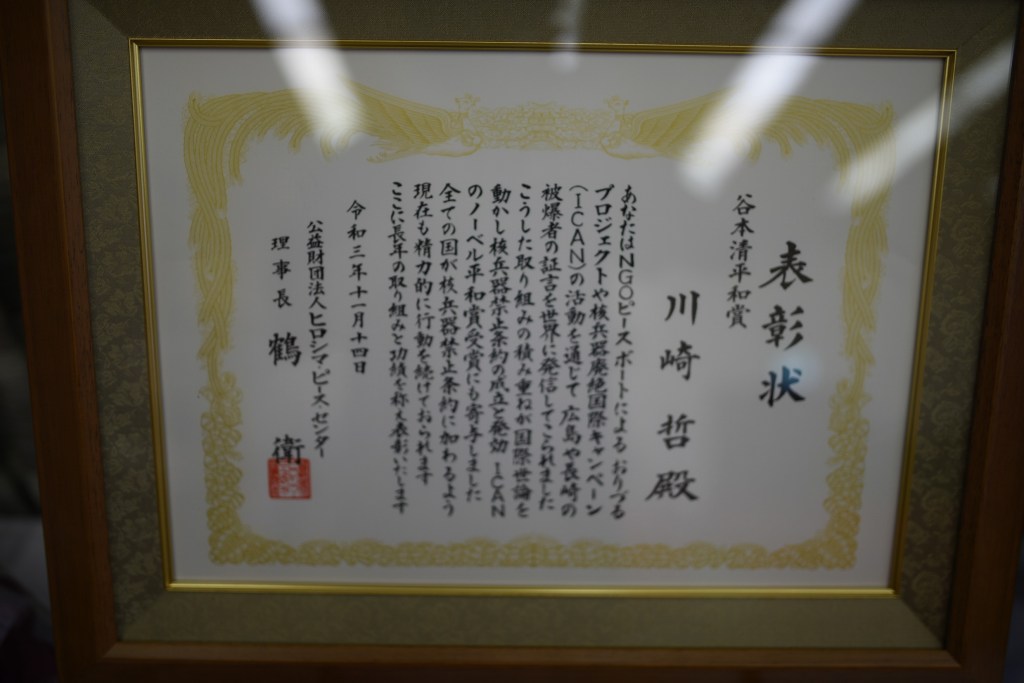 表彰状
谷本清平和賞
川崎 哲 殿
あなたはNGOピースボートによる おりづる
プロジェクトや核兵器廃絶国際キャンペーン
(ICAN)の活動を通じて 広島や長崎の
被爆者の証言を世界に発信してこられました
こうした取り組みの積み重ねが国際世論を
動かし核兵器禁止条約の成立と発効 ICAN
のノーベル平和賞受賞にも寄与しました
全ての国が核兵器禁止条約に加わるよう
現在も精力的に行動を続けておられます
ここに長年の取り組みと功績を称え表彰いたします
令和三年十一月十四日
公益財団法人ヒロシマ・ピース・センター
理事長 鶴 衛